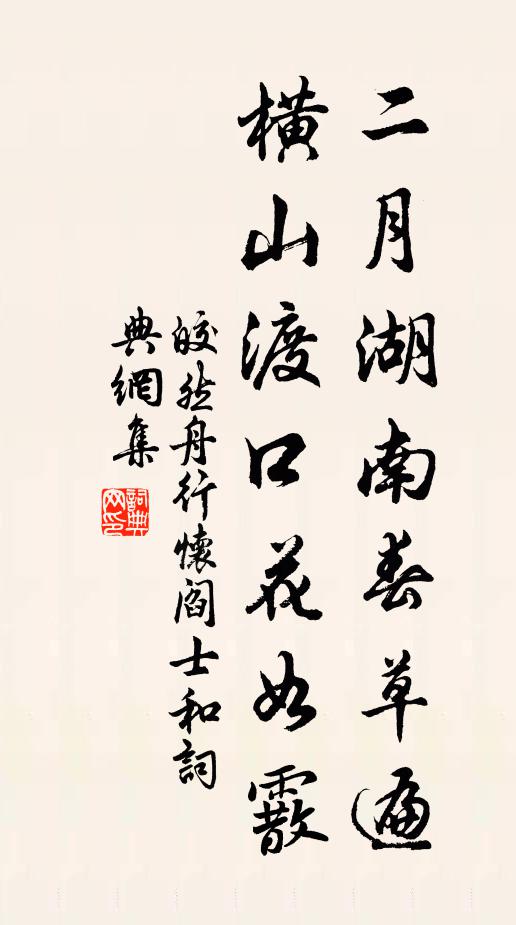 二月湖南春草遍
橫山渡口花如霰
皎然舟行懷閻士和詞
典網集
詞典
网印